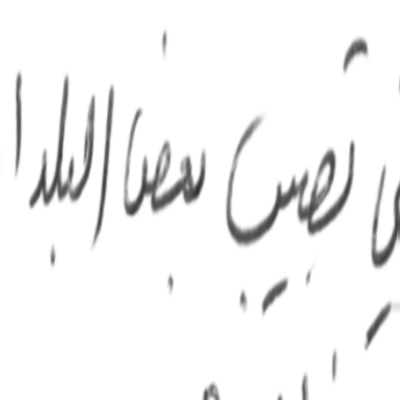 تصيب بعض البلدا